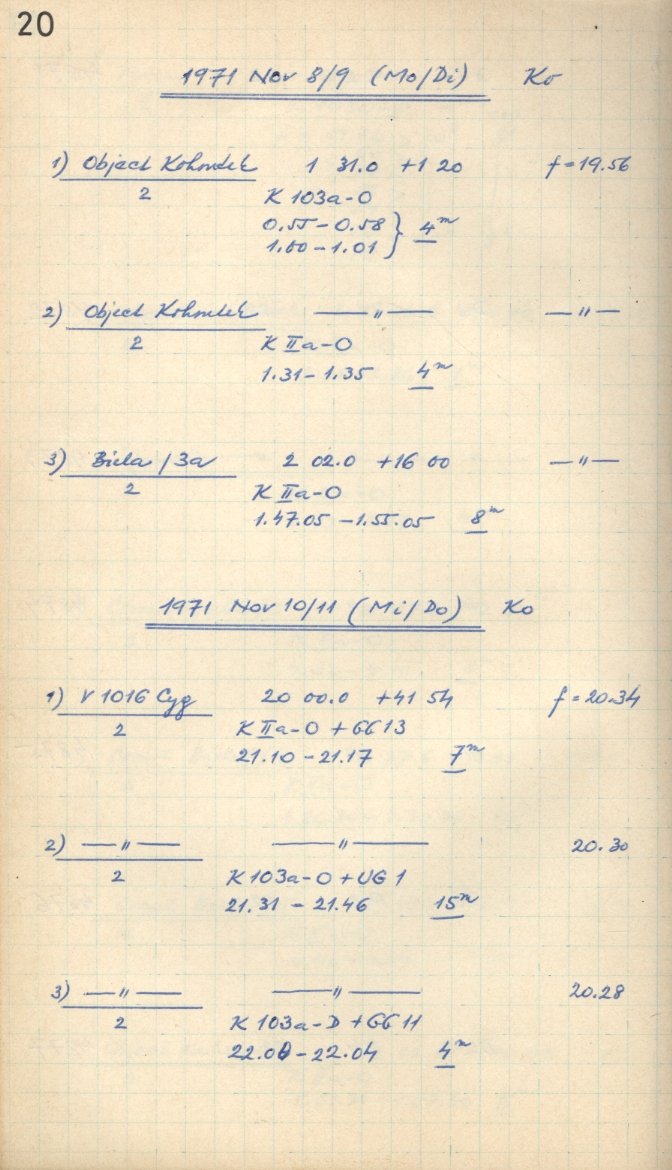 20
1971 Nov 8/9 (Mo/Di) Ko
1) Object Kohoutek 1 31.0 +1 20 f = 19.56
2 K 103a-O
0.55 - 0.58 } 4m
1.00 - 1.01
2) Object Kohoutek — " — — " —
2 K IIa-O
1.31 - 1.35 4m
3) Biela / 3a 2 02.0 +16 00 — " —
2 K IIa-O
1.47.05 - 1.55.05 8m
1971 Nov 10/11 (Mi/Do) Ko
1) V 1016 Cyg 20 00.0 +41 54 f = 20.34
2 K IIa-O + GG 13
21.10 - 21.17 7m
2) — " — — " — 20.30
2 K 103a-O + UG 1
21.31 - 21.46 15m
3) — " — — " — 20.28
2 K 103a-D + GG 11
22.00 - 22.04 4m